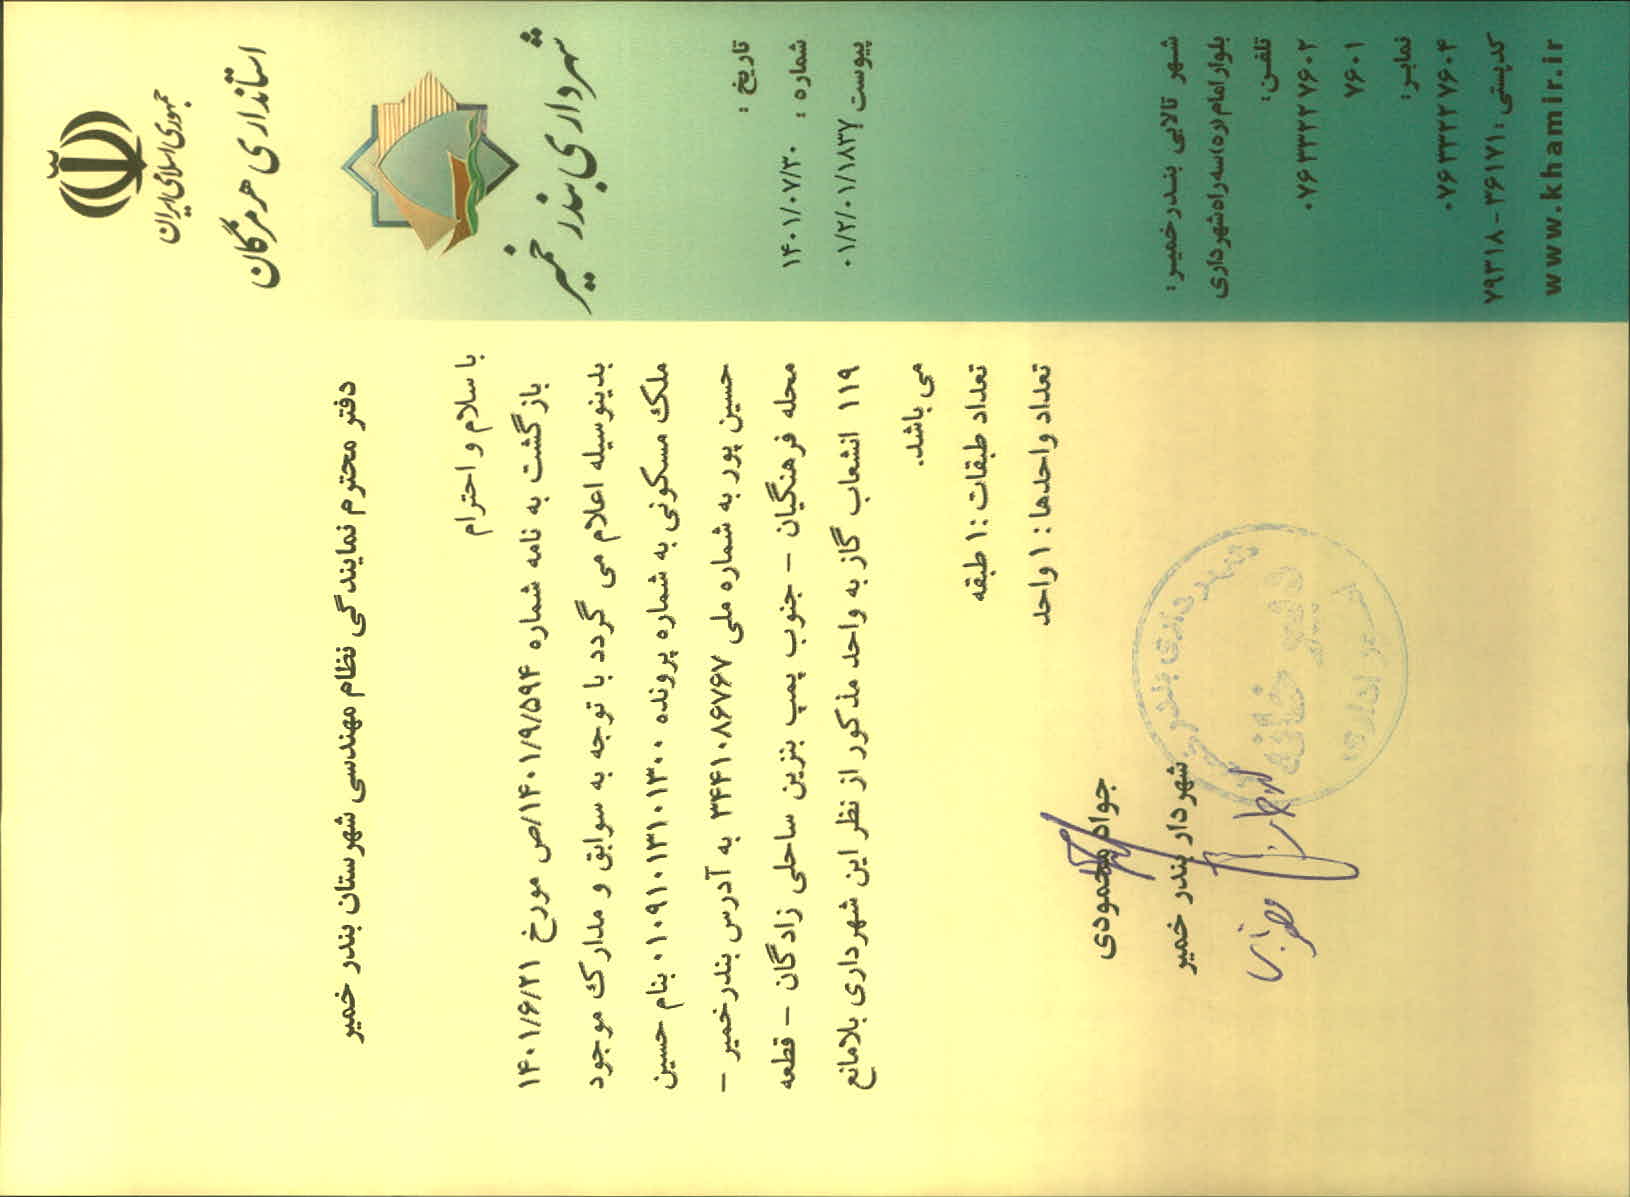 جمهوری اسلامی ایران
استانداری هرمزگان
شهرداری بندر خمیر
تاریخ :
شماره : ۱۴۰۱/۰۷/۳۰
پیوست ۰۱/۲/۰۱/۱۸۳۷
دفتر محترم نمایندگی نظام مهندسی شهرستان بندر خمیر
با سلام و احترام
بازگشت به نامه شماره ۱۴۰۱/۹/۵۹۴/ص مورخ ۱۴۰۱/۶/۲۱
بدینوسیله اعلام می گردد با توجه به سوابق و مدارک موجود
ملک مسکونی به شماره پرونده ۰۱۰۹۱۰۱۳۱۰۱۳۰۰ بنام حسین
حسین پور به شماره ملی ۳۴۴۱۰۸۶۷۶۷ به آدرس بندرخمیر -
محله فرهنگیان - جنوب پمپ بنزین ساحلی زادگان - قطعه
۱۱۹ انشعاب گاز به واحد مذکور از نظر این شهرداری بلامانع
می باشد.
تعداد طبقات : ۱ طبقه
تعداد واحدها : ۱ واحد
جواد محمودی
شهردار بندر خمیر
شهرداری بندر خمیر
دبیرخانه
شهر تالابی بندرخمیر:
بلوار امام (ره) سه راه شهرداری
تلفن:
۰۷۶۳۳۳۲۷۶۰۲
۷۶۰۱
نمابر:
۰۷۶۳۳۳۲۷۶۰۴
کدپستی: ۳۶۱۷۱-۷۹۳۱۸
www.khamir.ir